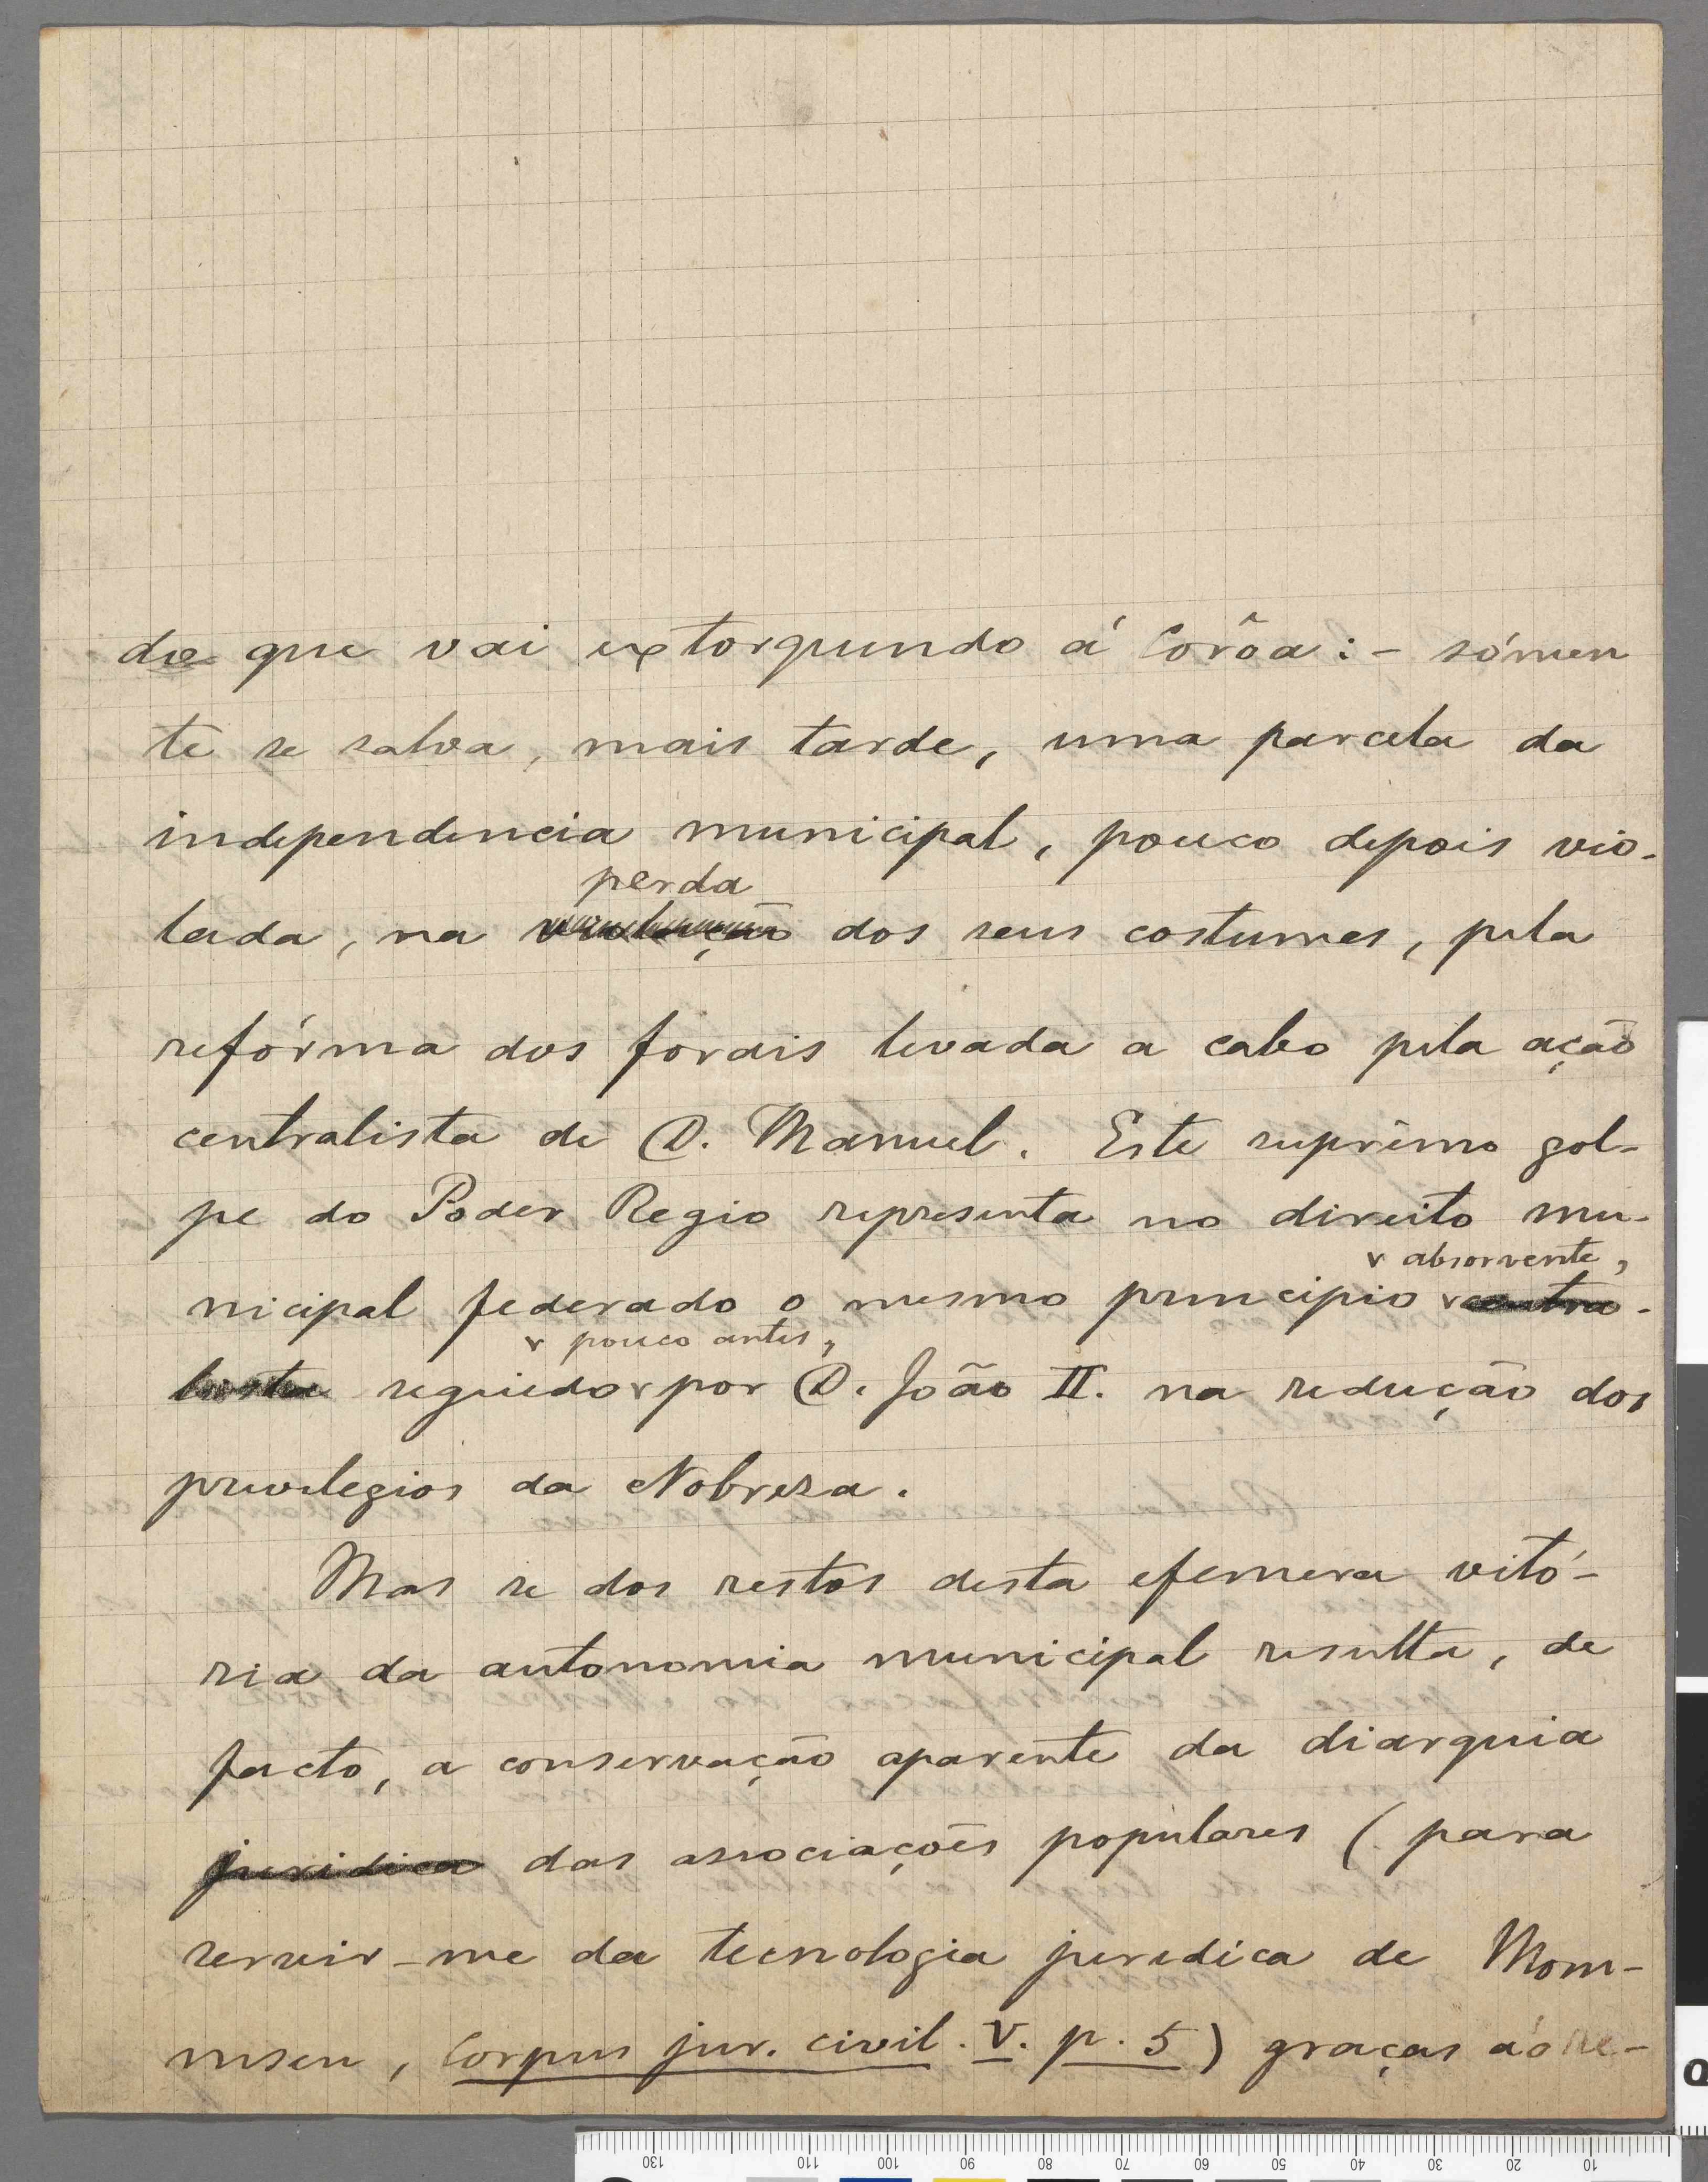 do que vai extorquindo á Corôa: - sómen
te se salva, mais tarde, uma parcela da
independencia municipal, pouco depois vio-
perda
lada, na violação dos seus costumes, pela
refórma dos forais levada a cabo pela ação
centralista de D. Manuel. Este suprêmo gol-
pe do Poder Regio representa no direito mu-
v absorvente,
nicipal federado o mesmo principio v centra-
v pouco antes,
lista seguido v por D. João II. na redução dos
privilegios da Nobreza.
Mas se dos restos desta efemera vitó-
ria da autonomia municipal resulta, de
facto, a conservação aparente da diarquia
juridica das associações populares (para
servir-me da tecnologia juridica de Mom-
msen, Corpus jur. civil. V. p. 5) graças ás re-
130 110 100 90 80 70 60 50 40 30 20 10